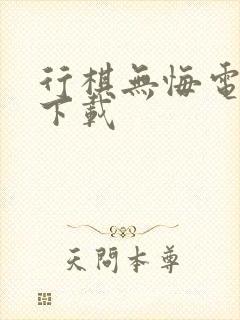 行棋無悔電
下載
天問本尊